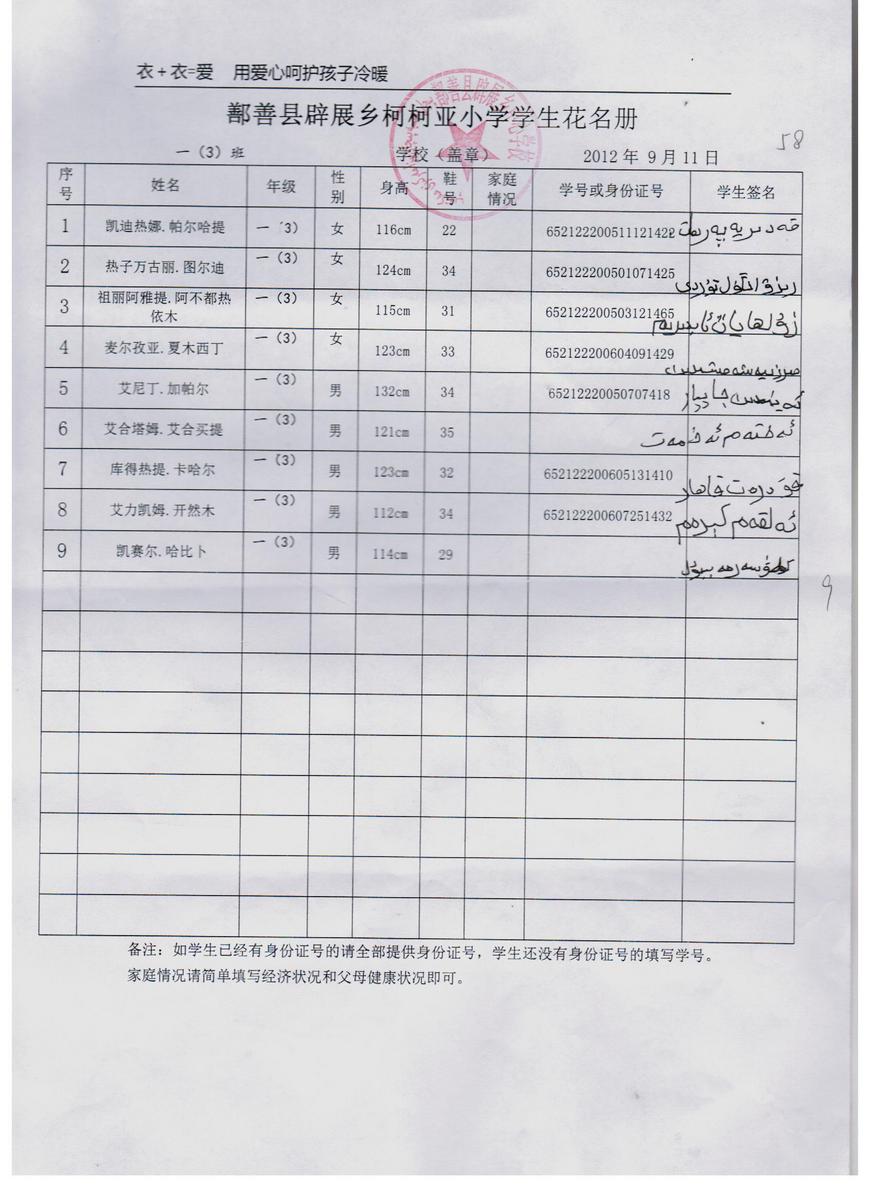 衣+衣=爱 用爱心呵护孩子冷暖
鄯善县辟展乡柯柯亚小学学生花名册
58
一（3）班 学校（盖章） 2012 年 9 月 11 日
序号 姓名 年级 性别 身高 鞋号 家庭情况 学号或身份证号 学生签名
1 凯迪热娜.帕尔哈提 一（3） 女 116cm 22 652122200511121422
2 热子万古丽.图尔迪 一（3） 女 124cm 34 652122200501071425 رىزۋانگۈل تۇردى
3 祖丽阿雅提.阿不都热依木 一（3） 女 115cm 31 652122200503121465
4 麦尔孜亚.夏木西丁 一（3） 女 123cm 33 652122200604091429
5 艾尼丁.加帕尔 一（3） 男 132cm 34 65212220050707418
6 艾合塔姆.艾合买提 一（3） 男 121cm 35 ئەختەم ئەخمەت
7 库得热提.卡哈尔 一（3） 男 123cm 32 652122200605131410 قۇدرەت قاھار
8 艾力凯姆.开然木 一（3） 男 112cm 34 652122200607251432 ئەلقەم كېرەم
9 凯赛尔.哈比卜 一（3） 男 114cm 29
9
备注：如学生已经有身份证号的请全部提供身份证号，学生还没有身份证号的填写学号。
家庭情况请简单填写经济状况和父母健康状况即可。